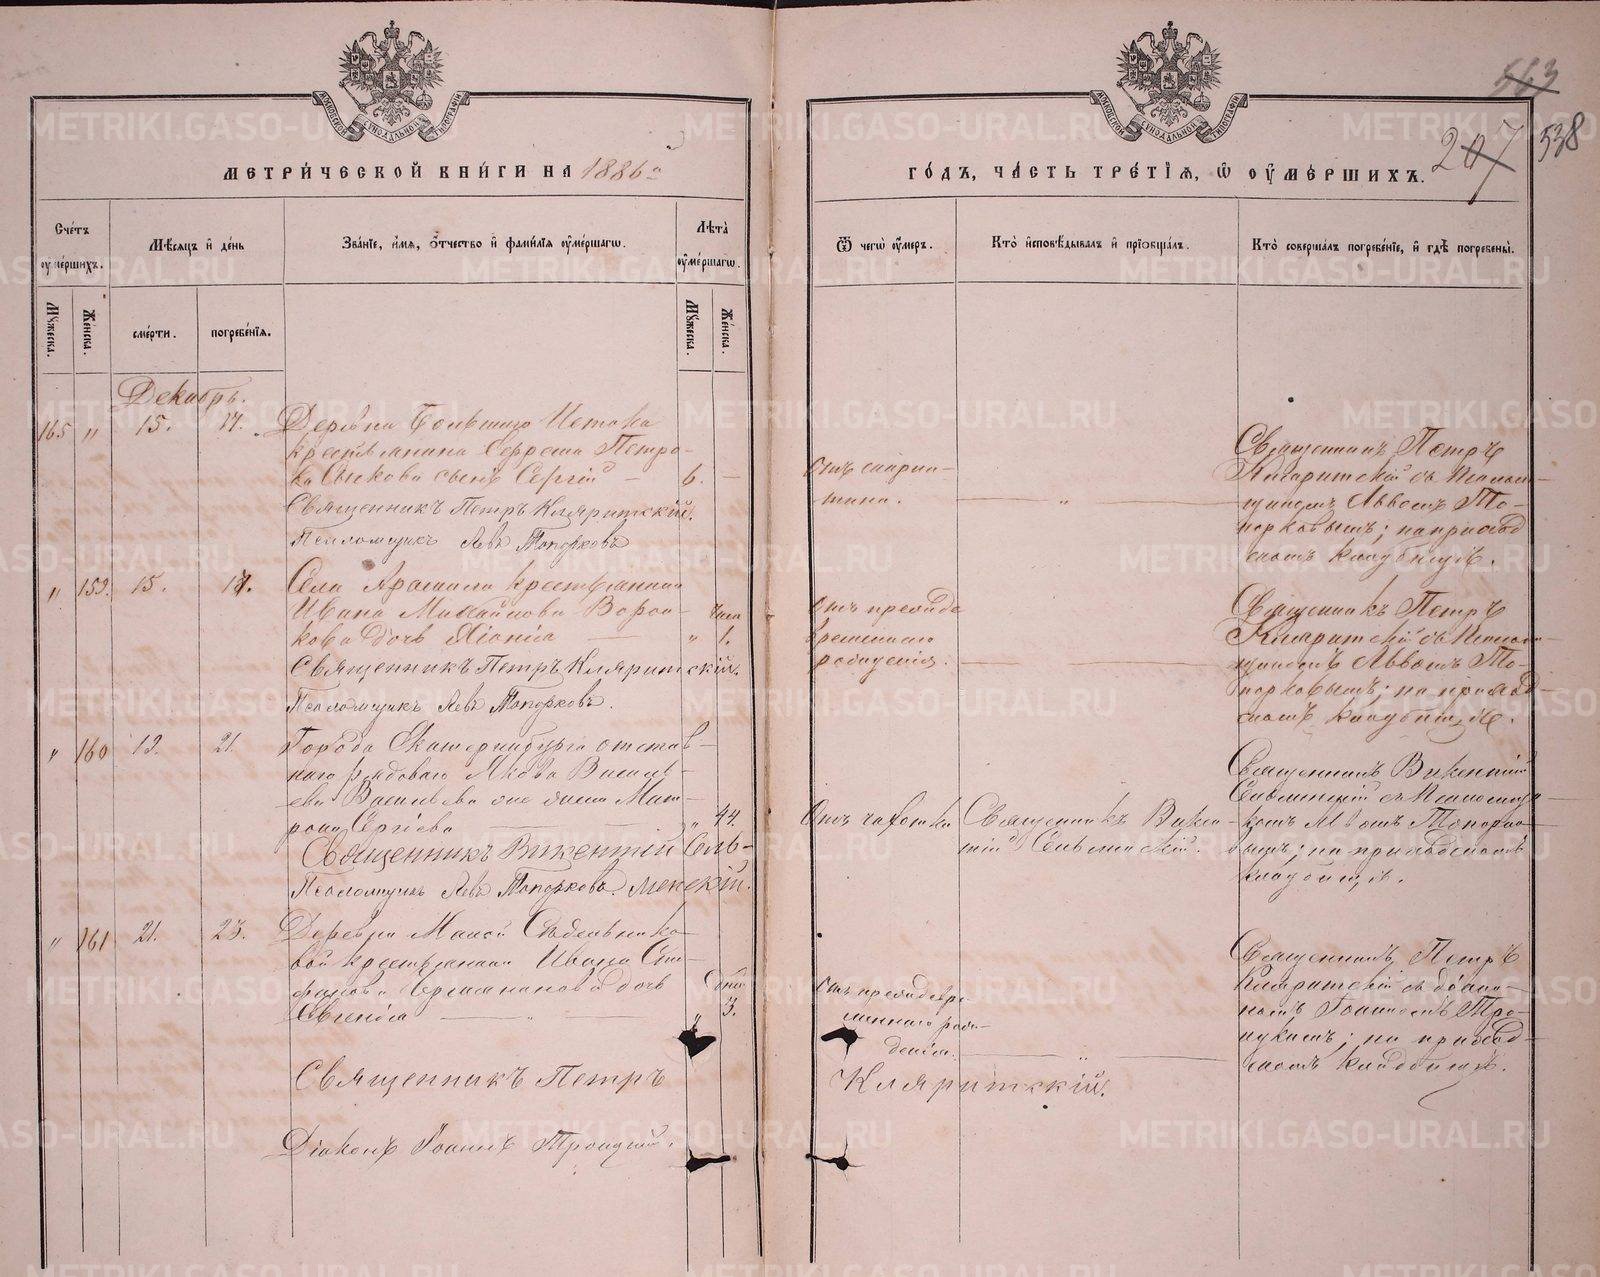 МОСКОВСКОЙ СѴНОДАЛЬНОЙ ТИПОГРАФІИ
МОСКОВСКОЙ СѴНОДАЛЬНОЙ ТИПОГРАФІИ
МЕТРИ́ЧЕСКОЙ КНИ́ГИ НА 1886й
ГО́ДЪ, ЧА́СТЬ ТРЕ́ТІѦ, Ѿ ОУ҆МЕ́РШИХЪ.
207
538
Сче́тъ оу҆ме́ршихъ.
Мѣ́сѧцъ и҆ де́нь
Зва́нїе, и҆́мѧ, ѻ҆́тчество и҆ фами́лїѧ оу҆ме́ршагѡ.
Лѣ́та оу҆ме́ршагѡ.
Ѿ чегѡ̀ оу҆́меръ.
Кто̀ и҆сповѣ́дывалъ и҆ прїѡбща́лъ.
Кто̀ соверша́лъ погребе́нїе, и҆ гдѣ̀ погребены̀.
Мꙋ́жеска.
Же́нска.
сме́рти.
погребе́нїѧ.
Мꙋ́жеска.
Же́нска.
Декабрь.
165 " 15. 17.
Деревни Большаго Истока
крестьянина Петро-
ва сынъ Сергій — 6. —
Священникъ Петръ Кляритскій.
Псаломщикъ Левъ Топорковъ
Отъ скарла-
тина.
"
Священникъ Петръ
Кляритскій съ Псалом-
щикомъ Львомъ То-
порковымъ; на приход-
скомъ кладбищѣ.
" 159. 15. 17.
Села Арамили крестьянина
Ивана Михайлова Ворон-
кова дочь — " Часа 1.
Священникъ Петръ Кляритскій.
Псаломщикъ Левъ Топорковъ.
Отъ преждe
временнаго
рожденія.
Священникъ Петръ
Кляритскій съ Псалом-
щикомъ Львомъ То-
порковымъ; на приход-
скомъ кладбищѣ.
" 160 19. 21.
Города Екатеринбурга отстав-
наго рядоваго Василь-
ева Васильева жена Мат-
рона Сергіева — " 44.
Священникъ Викентій Сель-
менскій.
Псаломщикъ Левъ Топорковъ.
Отъ чахотки
Священникъ Викен-
тій Сельменскій.
Священникъ Викентій
Сельменскій съ Псаломщи-
комъ Львомъ Топорко-
вымъ; на приходскомъ
кладбищѣ.
" 161 21. 23.
Деревни Малой Сѣдельнико-
вой крестьянина Ивана Сте-
фанова дочь
Евгенія — " — " Дней 3.
Отъ преждевре-
меннаго рож-
денія.
"
Священникъ Петръ
Кляритскій съ діако-
номъ Іоанномъ Тро-
ицкимъ; на приход-
скомъ кладбищѣ.
Священникъ Петръ Кляритскій.
Діаконъ Іоаннъ Троицкій.
METRIKI.GASO-URAL.RU